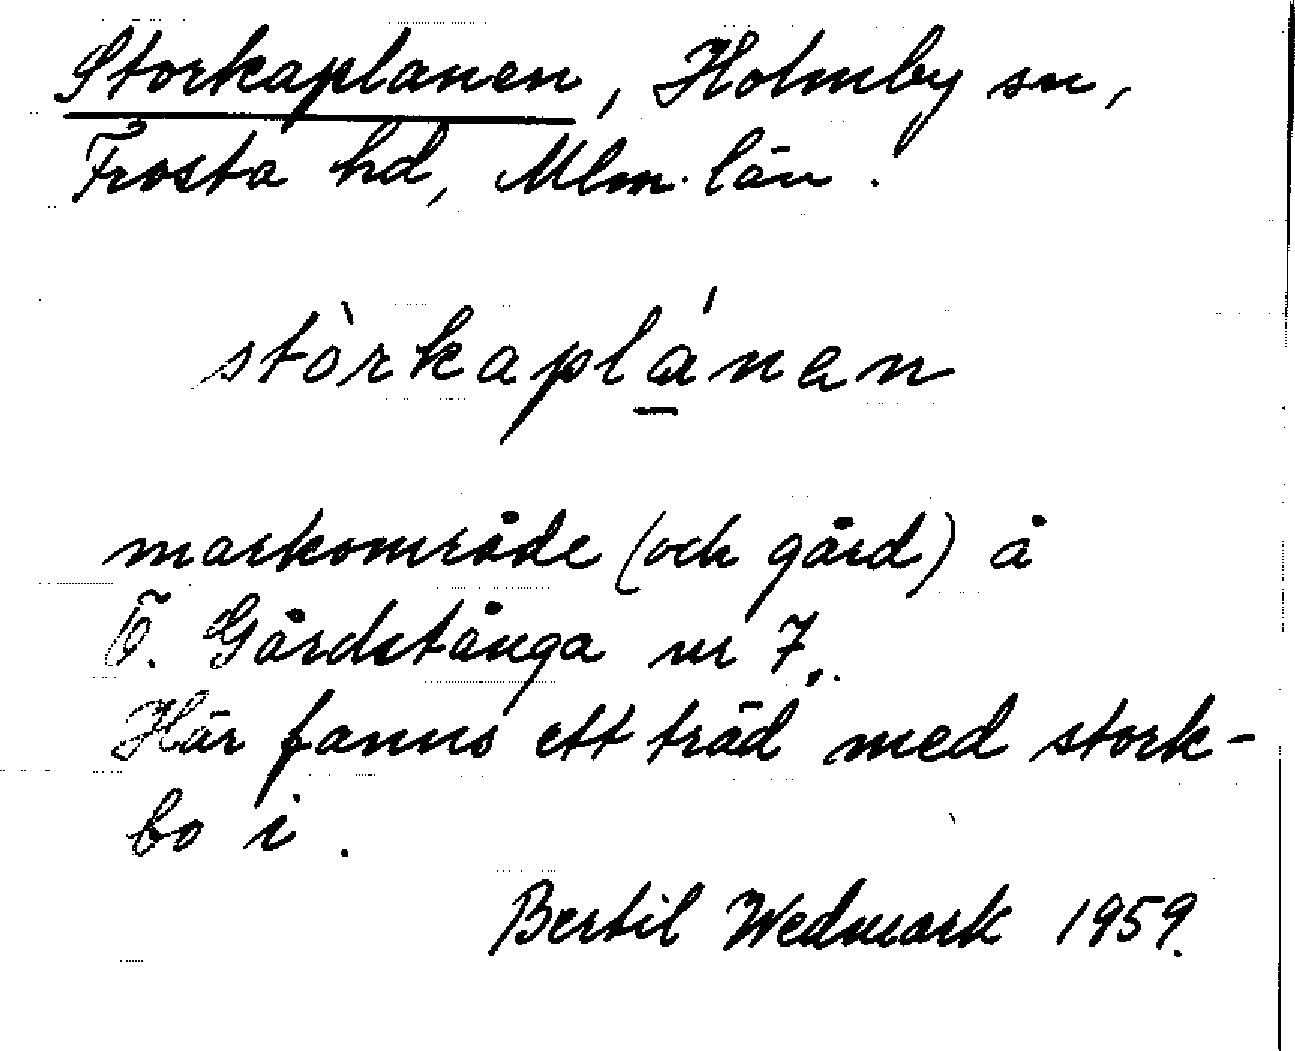 Storkaplanen, Holmby sn,
Frosta hd, Mlm. län.
stòrkaplánen
markområde (och gård) å
Ö. Gårdstånga nr 7.
Här fanns ett träd med stork-
bo i.
Bertil Wedmark 1959.